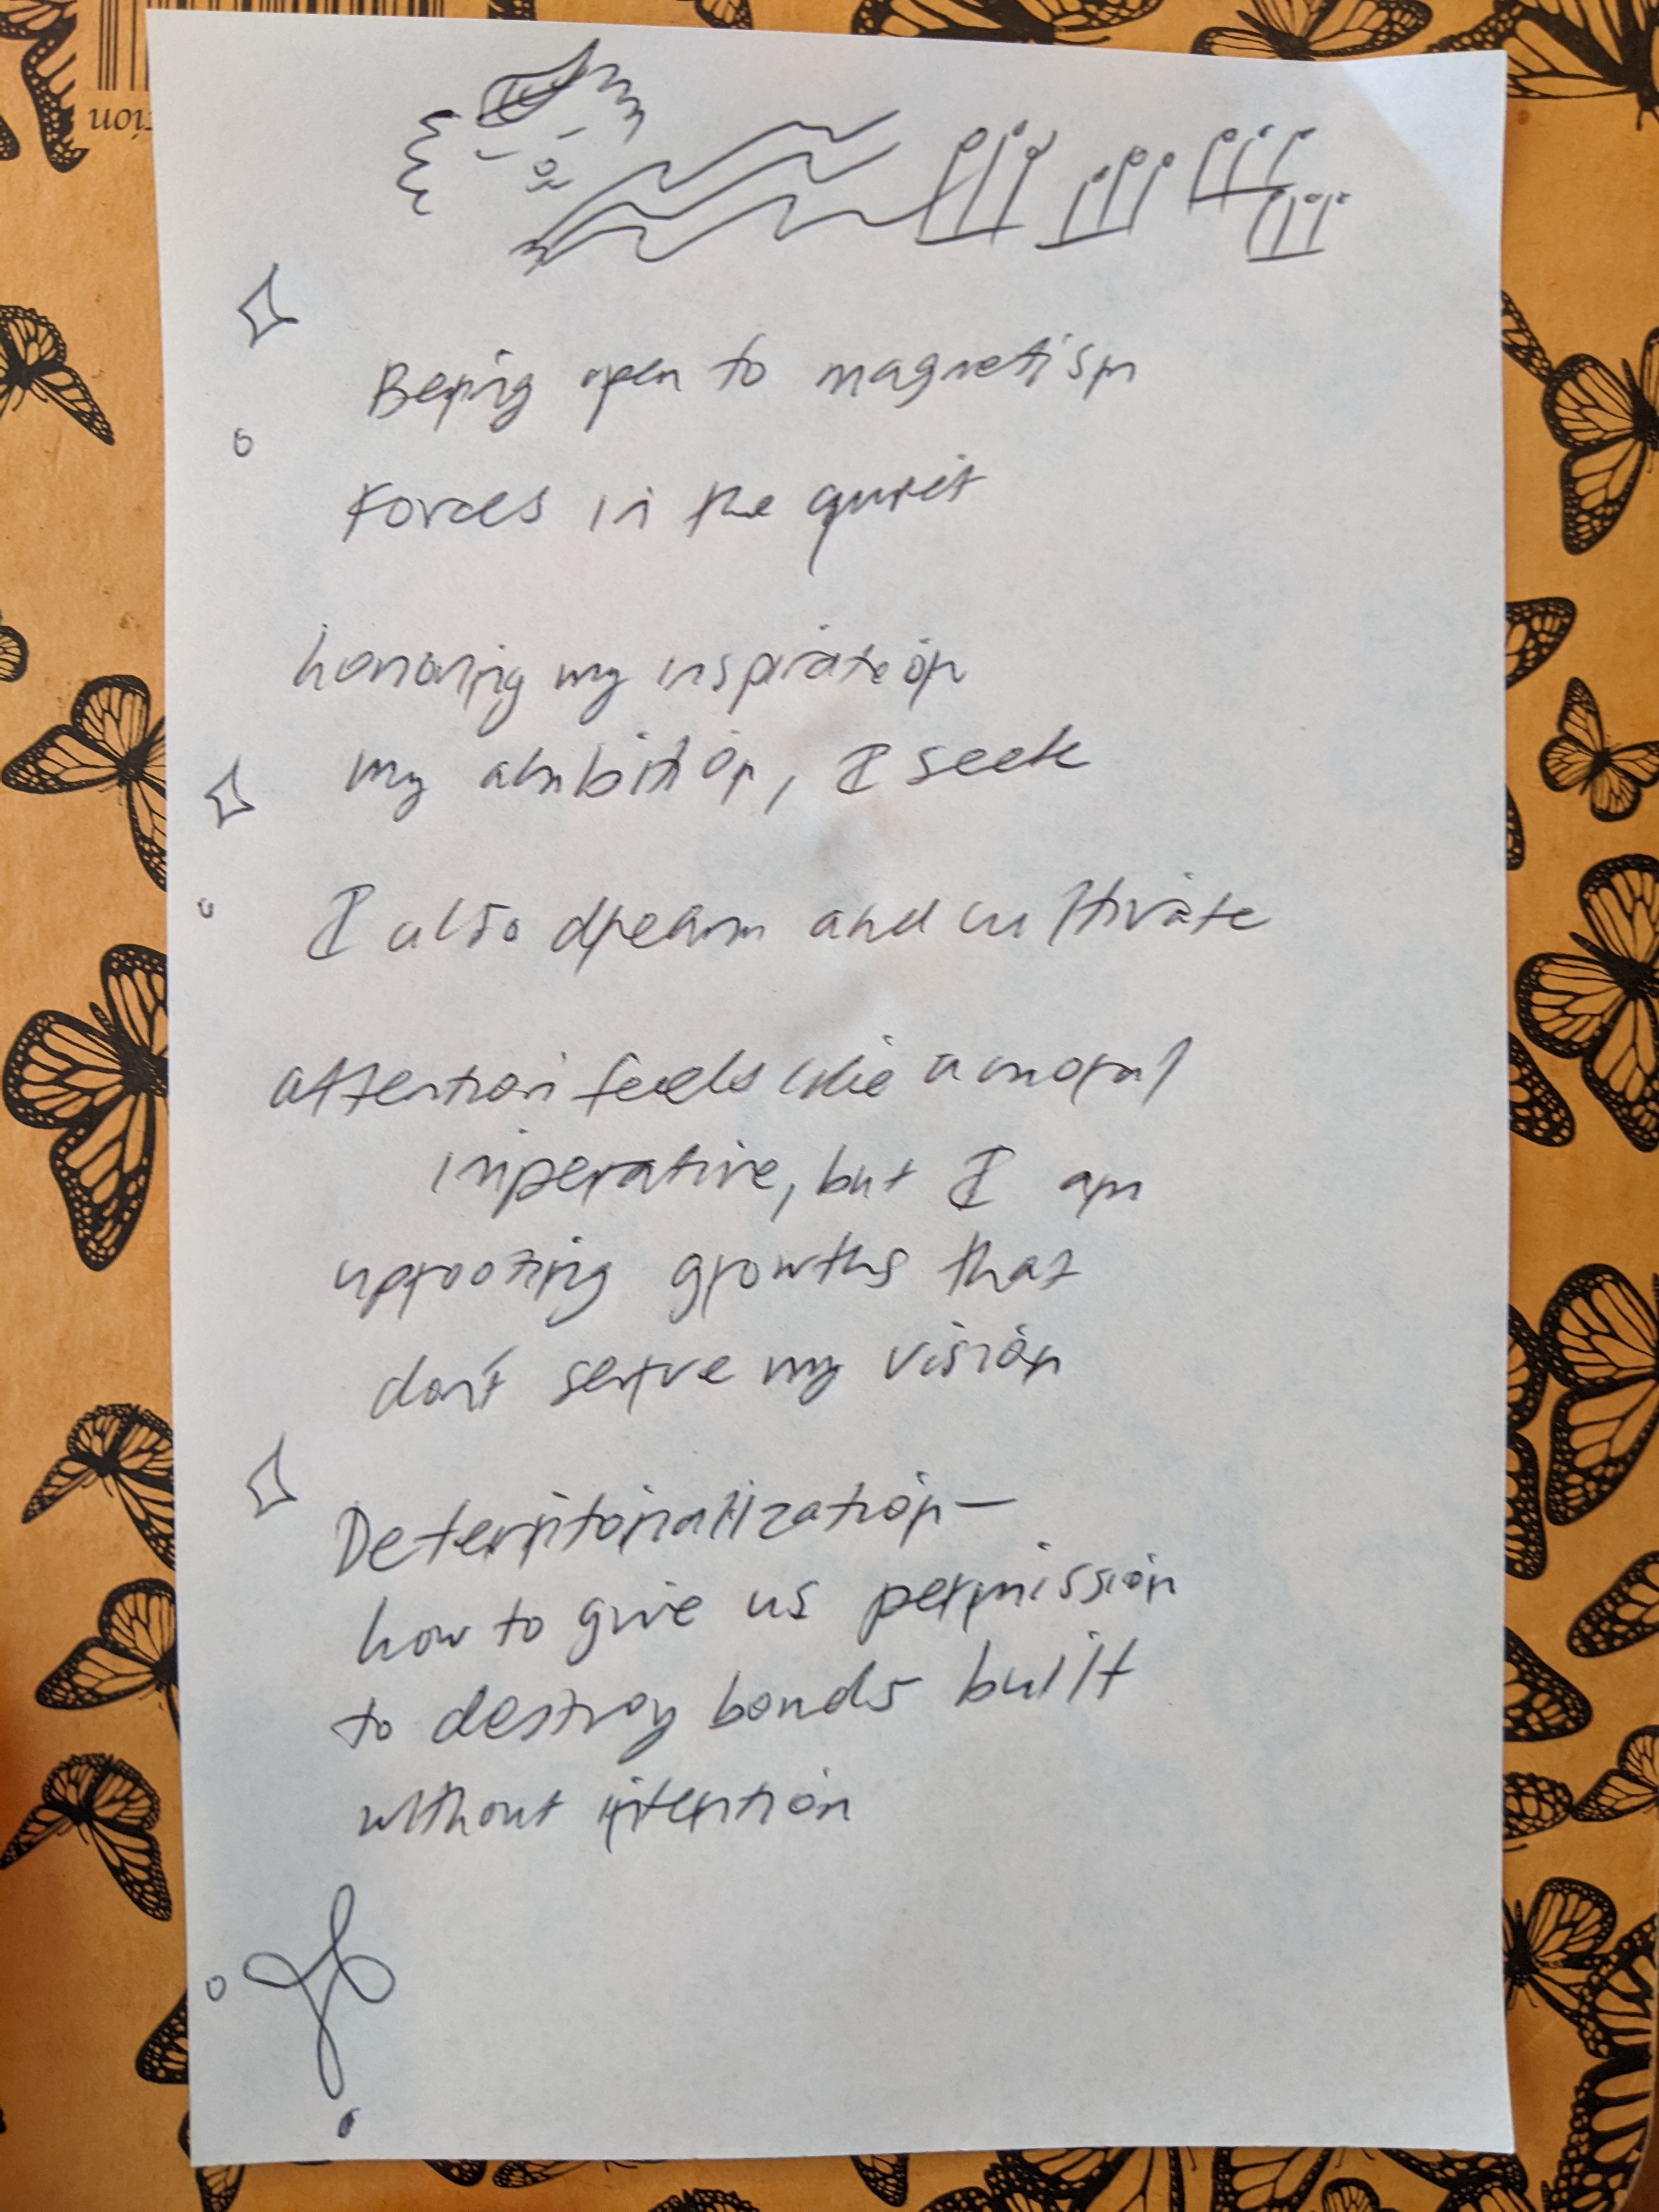 tion
Being open to magnetism
Forces in the quiet
honoring my inspiration
my ambition, I seek
I also dream and cultivate
attention feels like a moral
imperative, but I am
uprooting growths that
don't serve my vision
Deterritorialization—
how to give us permission
to destroy bonds built
without intention